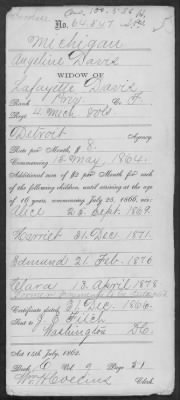 No. 64,547
Michigan
Angeline Davis
WIDOW OF
Lafayette Davis
Rank Priv Co. F.
Reg't 4 Mich Vols
Detroit Agency.
Rate per Month, $ 8.
Commencing 13 May, 1864.
Additional sum of $2 per Month for each
of the following children, until arriving at the age
of 16 years, commencing July 25, 1866, viz:
Alice 23. Sept. 1869.
Harriet 31. Dec. 1871.
Edmund 21. Feb. 1876
Clara 13. April 1878
Certificate dated 31. Dec. 1866.
Sent to J. E. Fitch
Washington D.C.
Act 14th July, 1862.
Book Vol 9 Page 21
Clerk.